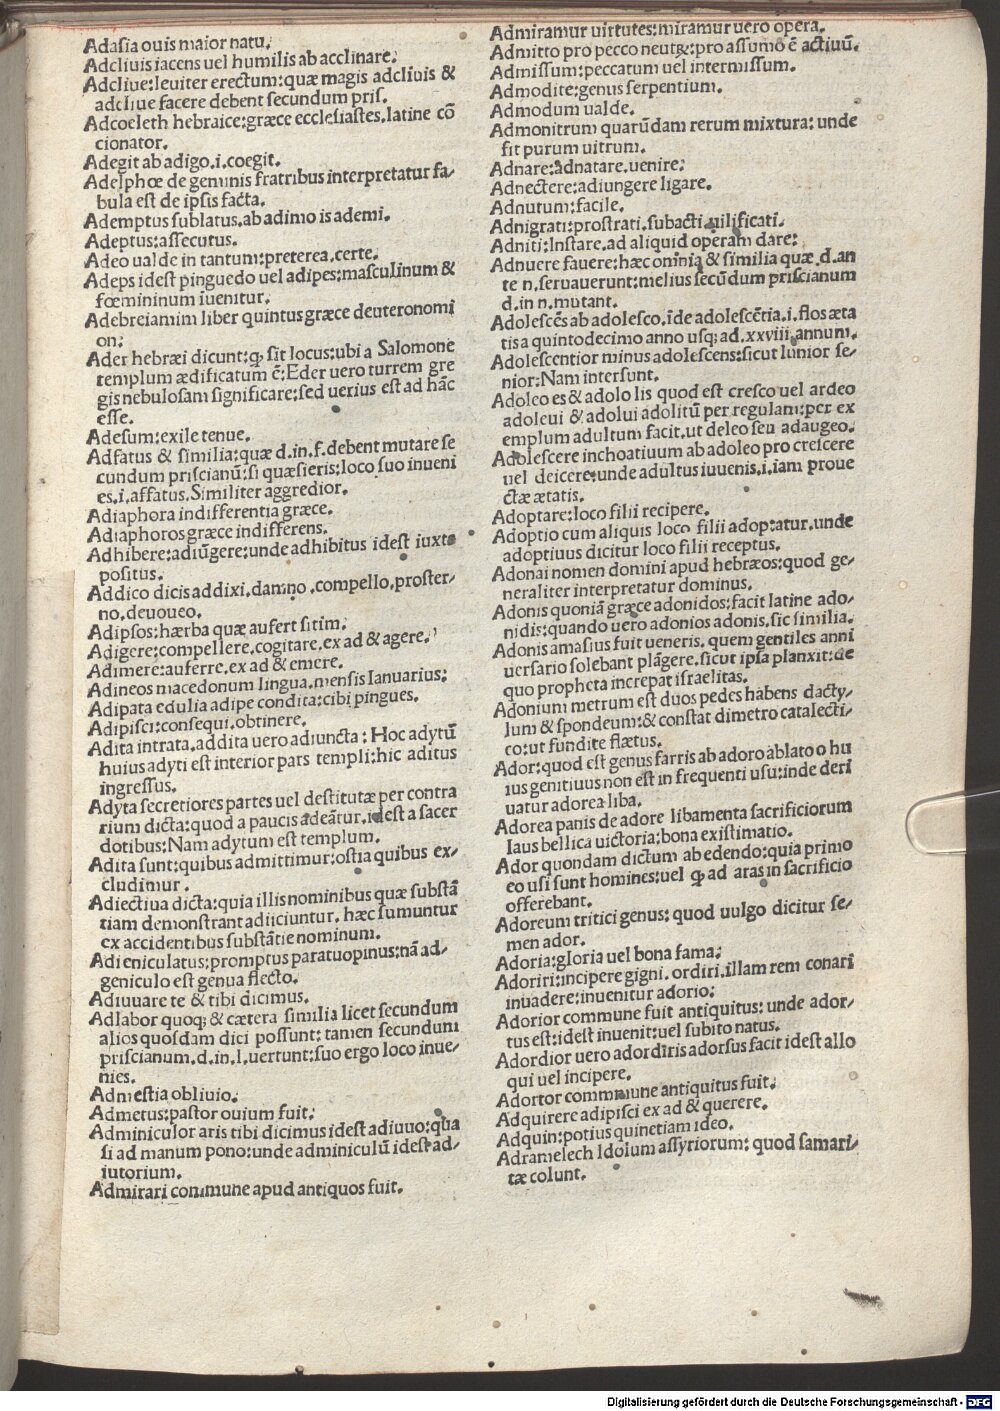 Adasia ouis maior natu.
Adcliuis iacens uel humilis ab acclinare.
Adcliue:leuiter erectum:quæ magis adcliuis &
adcliue facere debent secundum pris.
Adcoeleth hebraice:græce ecclesiastes.latine cō
cionator.
Adegit ab adigo.i.coegit.
Adelphœ de geminis fratribus interpretatur fa⸗
bula est de ipsis facta.
Ademptus sublatus.ab adimo is ademi.
Adeptus:assecutus.
Adeo ualde in tantum:preterea.certe.
Adeps idest pinguedo uel adipes:masculinum &
fœmininum iuenitur.
Adebreiamim liber quintus græce deuteronomi
on:
Ader hebræi dicunt:ꝙ sit locus:ubi a Salomone
templum ædificatum ē:Eder uero turrem gre
gis nebulosam significare:sed uerius est ad hāc
esse.
Adesum:exile tenue.
Adfatus & similia:quæ d.in.f.debent mutare se
cundum priscianū:si quæsieris:loco suo inueni
es.i.affatus.Similiter aggredior.
Adiaphora indifferentia græce.
Adiaphoros græce indifferens.
Adhibere:adiūgere:unde adhibitus idest iuxta
positus.
Addico dicis addixi.damno.compello.proster⸗
no.deuoueo.
Adipsos:hærba quæ aufert sitim.
Adigere:compellere.cogitare.ex ad & agere.
Adimere:auferre.ex ad & emere.
Adineos macedonum lingua.mensis Ianuarius:
Adipata edulia adipe condita:cibi pingues.
Adipisci:consequi.obtinere.
Adita intrata.addita uero adiuncta: Hoc adytū
huius adyti est interior pars templi:hic aditus
ingressus.
Adyta secretiores partes uel destitutæ per contra
rium dicta:quod a paucis adeātur.idest a sacer
dotibus:Nam adytum est templum.
Adita sunt:quibus admittimur:ostia quibus ex⸗
cludimur.
Adiectiua dicta:quia illis nominibus quæ substā
tiam demonstrant adiiciuntur. hæc sumuntur
ex accidentibus substātie nominum.
Adieniculatus:promptus paratuopinus:nā ad⸗
geniculo est genua flecto.
Adiuuare te & tibi dicimus.
Adlabor quoq; & cætera similia licet secundum
alios quosdam dici possunt: tamen secundum
priscianum.d.in.l.uertunt:suo ergo loco inue⸗
nies.
Admestia obliuio.
Admetus:pastor ouium fuit:
Adminiculor aris tibi dicimus idest adiuuo:qua
si ad manum pono:unde adminiculū idest ad⸗
iutorium.
Admirari commune apud antiquos fuit.
Admiramur uirtutes:miramur uero opera.
Admitto pro pecco neutꝝ:pro assumo ē actiuū.
Admissum:peccatum uel intermissum.
Admodite:genus serpentium.
Admodum ualde.
Admonitrum quarūdam rerum mixtura: unde
fit purum uitrum.
Adnare:adnatare.uenire:
Adnectere:adiungere ligare.
Adnutum:facile.
Adnigrati:prostrati.subacti.uilificati.
Adniti:Instare.ad aliquid operam dare:
Adnuere fauere:hæc omnia & similia quæ.d.an
te n.seruauerunt:melius secūdum priscianum
d.in n.mutant.
Adolescēs ab adolesco.īde adolescētia.i.flos æta
tis a quintodecimo anno usq; ad.xxviii.annum.
Adolescentior minus adolescens:sicut Iunior se⸗
nior:Nam intersunt.
Adoleo es & adolo lis quod est cresco uel ardeo
adoleui & adolui adolitū per regulam:per ex
emplum adultum facit.ut deleo seu adaugeo.
Adolescere inchoatiuum ab adoleo pro crescere
uel deicere:unde adultus iuuenis.i.iam proue
ctæ ætatis.
Adoptare:loco filii recipere.
Adoptio cum aliquis loco filii adoptatur.unde
adoptiuus dicitur loco filii receptus.
Adonai nomen domini apud hebræos:quod ge⸗
neraliter interpretatur dominus.
Adonis quoniā græce adonidos:facit latine ado⸗
nidis:quando uero adonios adonis.sic similia.
Adonis amasius fuit ueneris. quem gentiles anni
uersario solebant plāgere.sicut ipsa planxit:de
quo propheta increpat israelitas.
Adonium metrum est duos pedes habens dacty⸗
lum & spondeum:& constat dimetro catalecti⸗
co:ut fundite flætus.
Ador:quod est genus farris ab adoro ablato o hu
ius genitiuus non est in frequenti usu:inde deri
uatur adorea liba.
Adorea panis de adore libamenta sacrificiorum
laus bellica uictoria:bona existimatio.
Ador quondam dictum ab edendo:quia primo
eo usi sunt homines:uel ꝙ ad aras in sacrificio
offerebant.
Adoreum tritici genus: quod uulgo dicitur se⸗
men ador.
Adoria:gloria uel bona fama:
Adoriri:incipere gigni. ordiri.illam rem conari
inuadere:inuenitur adorio:
Adorior commune fuit antiquitus: unde ador⸗
tus est:idest inuenit:uel subito natus.
Adordior uero adordiris adorsus facit idest allo
qui uel incipere.
Adortor commune antiquitus fuit:
Adquirere adipisci ex ad & querere.
Adquin:potius quinetiam ideo.
Adramelech Idolum assyriorum: quod samari⸗
tæ colunt.
Digitalisierung gefördert durch die Deutsche Forschungsgemeinschaft - DFG